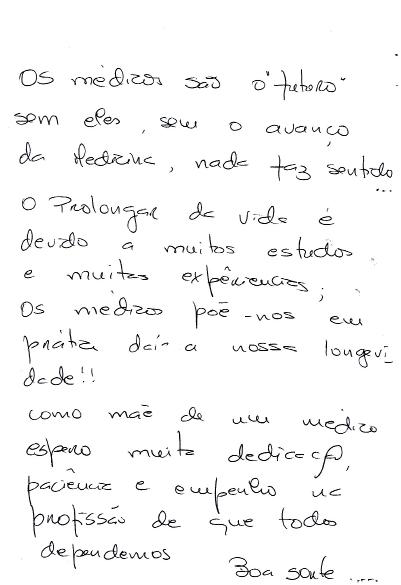 Os médicos são o "futuro"
sem eles, sem o avanço
da Medicina, nada faz sentido
...
O Prolongar da vida é
devido a muitos estudos.
e muitas expêriencias;
Os médicos poē-nos em
prática daí a nossa longevi-
dade!!
como mãe de um médico
espero muita dedicaçã,
paciência e empenho na
profissão de que todos
dependemos
Boa sorte .....